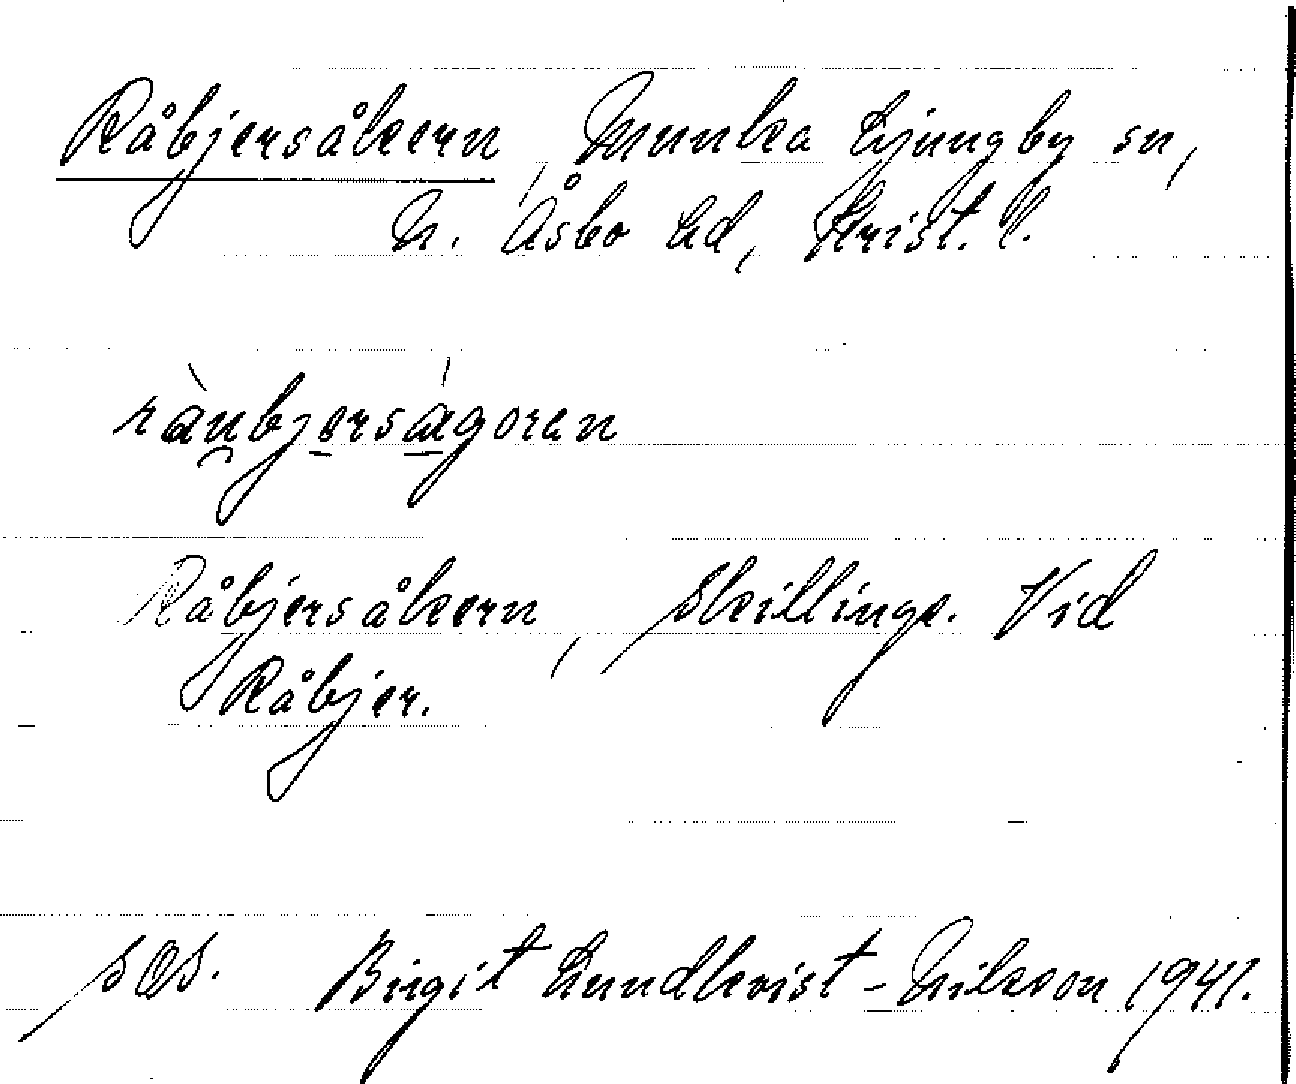 Råbjersåkern, Munka Ljungby sn,
N. Åsbo hd, Krist. l.
ràu̯bjerságoren
Råbjersåkern, skillinge. Vid
Råbjer.
sOs. Birgit Lundkvist-Nilsson 1941.